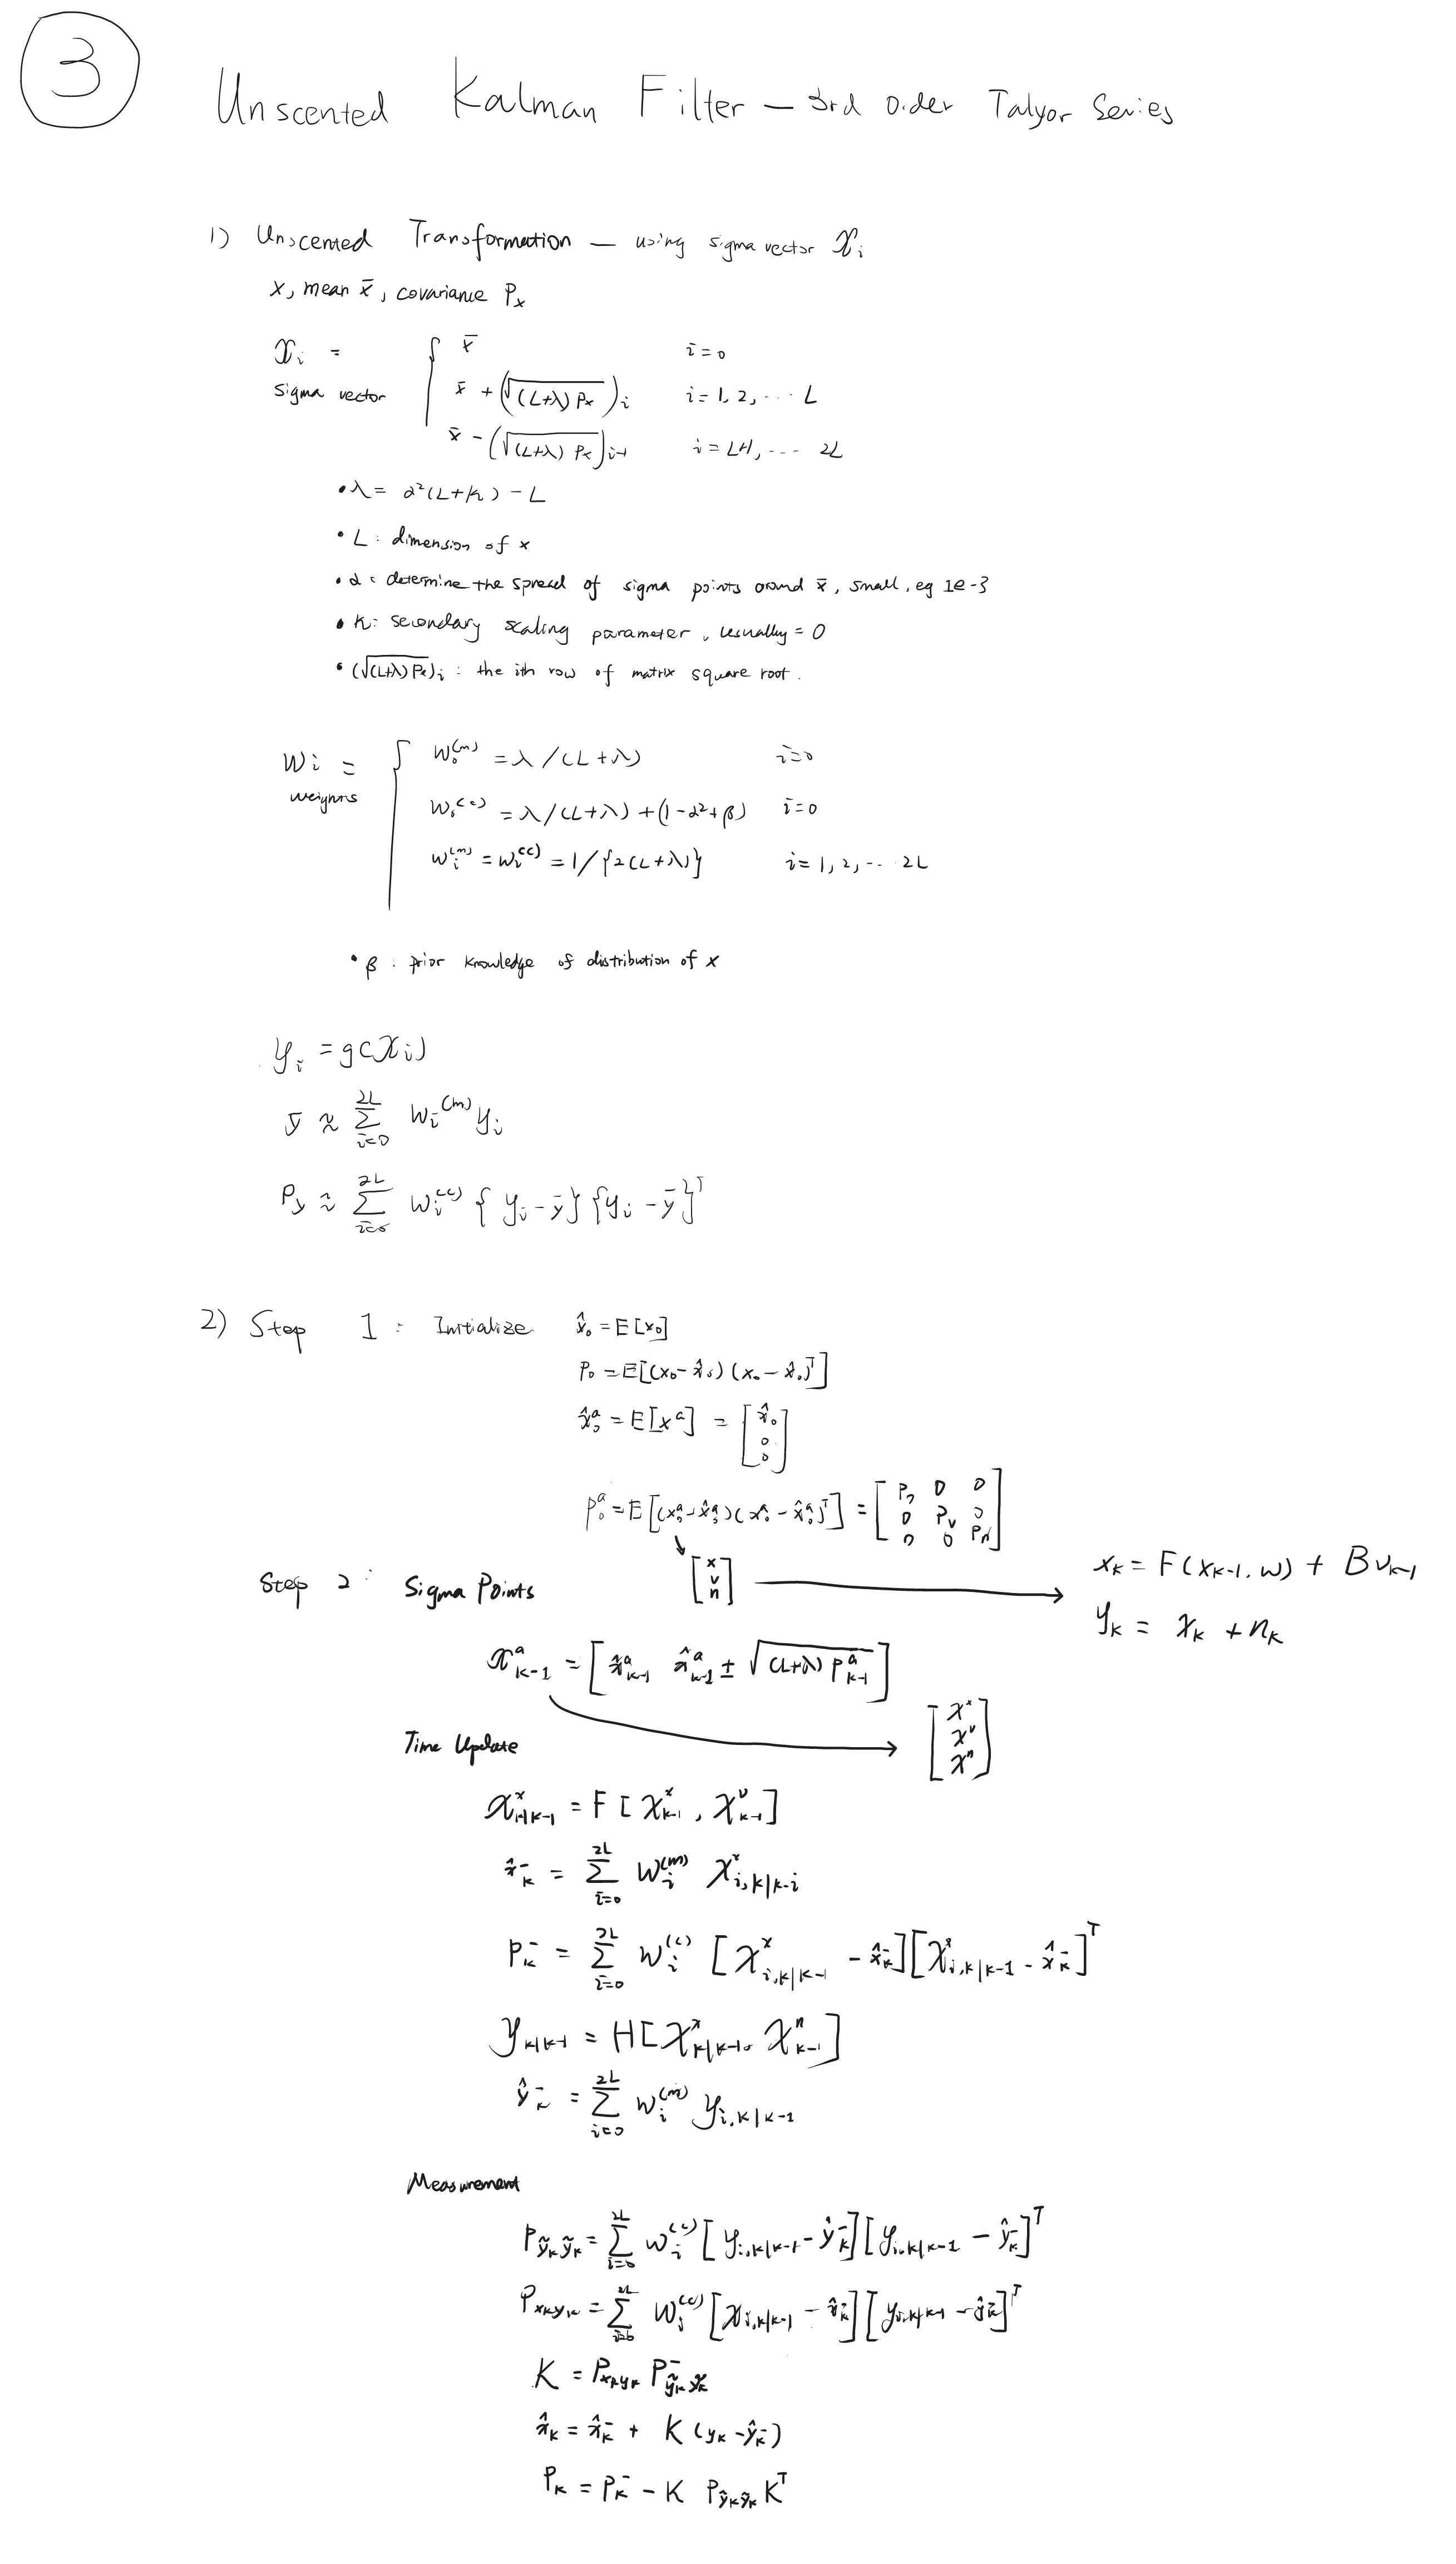 3
Unscented Kalman Filter — 3rd order Talyor Series
1) Unscented Transformation — using sigma vector 𝒳i
x, mean x̄, covariance Px
𝒳i = { x̄ i=0
sigma vector x̄ + (√(L+λ)Px)i i=1,2,··· L
x̄ - (√(L+λ)Px)i-1 i=L+1,--- 2L
• λ = α²(L+κ) - L
• L: dimension of x
• α: determine the spread of sigma points around x̄, small, eg 1e-3
• κ: secondary scaling parameter, usually = 0
• (√(L+λ)Px)i : the ith row of matrix square root.
Wi = { W0^(m) = λ/(L+λ) i=0
weights W0^(c) = λ/(L+λ) + (1-α²+β) i=0
Wi^(m) = Wi^(c) = 1/{2(L+λ)} i=1,2,-·· 2L
• β: prior knowledge of distribution of x
𝒴i = g(𝒳i)
ȳ ≈ Σ_{i=0}^{2L} Wi^(m) 𝒴i
Py ≈ Σ_{i=0}^{2L} Wi^(c) {𝒴i - ȳ}{𝒴i - ȳ}^T
2) Step 1: Initialize x̂0 = E[x0]
P0 = E[(x0 - x̂0)(x0 - x̂0)^T]
x̂0^a = E[x^a] = [x̂0 0 0]
P0^a = E[(x0^a - x̂0^a)(x0^a - x̂0^a)^T] = [P0 0 0
0 Pv 0
0 0 Pn]
Step 2: Sigma Points [x v n] → xk = F(xk-1, w) + Bvk-1
yk = xk + nk
𝒳^a_{k-1} = [x̂^a_{k-1} x̂^a_{k-1} ± √(L+λ)P^a_{k-1}]
Time Update → [𝒳^x 𝒳^v 𝒳^n]
𝒳^x_{k|k-1} = F[𝒳^x_{k-1}, 𝒳^v_{k-1}]
x̂k^- = Σ_{i=0}^{2L} Wi^(m) 𝒳^x_{i,k|k-i}
Pk^- = Σ_{i=0}^{2L} Wi^(c) [𝒳^x_{i,k|k-1} - x̂k^-][𝒳^x_{i,k|k-1} - x̂k^-]^T
𝒴_{k|k-1} = H[𝒳^x_{k|k-1}, 𝒳^n_{k-1}]
ŷk^- = Σ_{i=0}^{2L} Wi^(m) 𝒴_{i,k|k-1}
Measurement
P_{ỹkỹk} = Σ_{i=0}^{2L} Wi^(c) [𝒴_{i,k|k-1} - ŷk^-][𝒴_{i,k|k-1} - ŷk^-]^T
P_{xkyk} = Σ_{i=0}^{2L} Wi^(c) [𝒳_{i,k|k-1} - x̂k^-][𝒴_{i,k|k-1} - ŷk^-]^T
K = P_{xkyk} P^-_{ỹkỹk}
x̂k = x̂k^- + K(yk - ŷk^-)
Pk = Pk^- - K P_{ỹkỹk} K^T